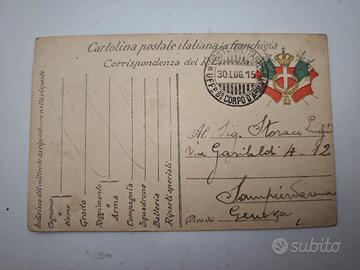 Cartolina postale italiana in franchigia
Corrispondenza del R. Esercito
30.LUG.15
UFFº DI CORPO D'ARMATA
Indirizzo del mittente da riprodurre nelle risposte
Cognome
Nome
Grado
Reggimento
e
Arma
Compagnia
Squadrone
Batteria
Riparti speciali
Al Sig. Storace Luigi
Via Garibaldi 4-12
Sampierdarena
Genova
subito